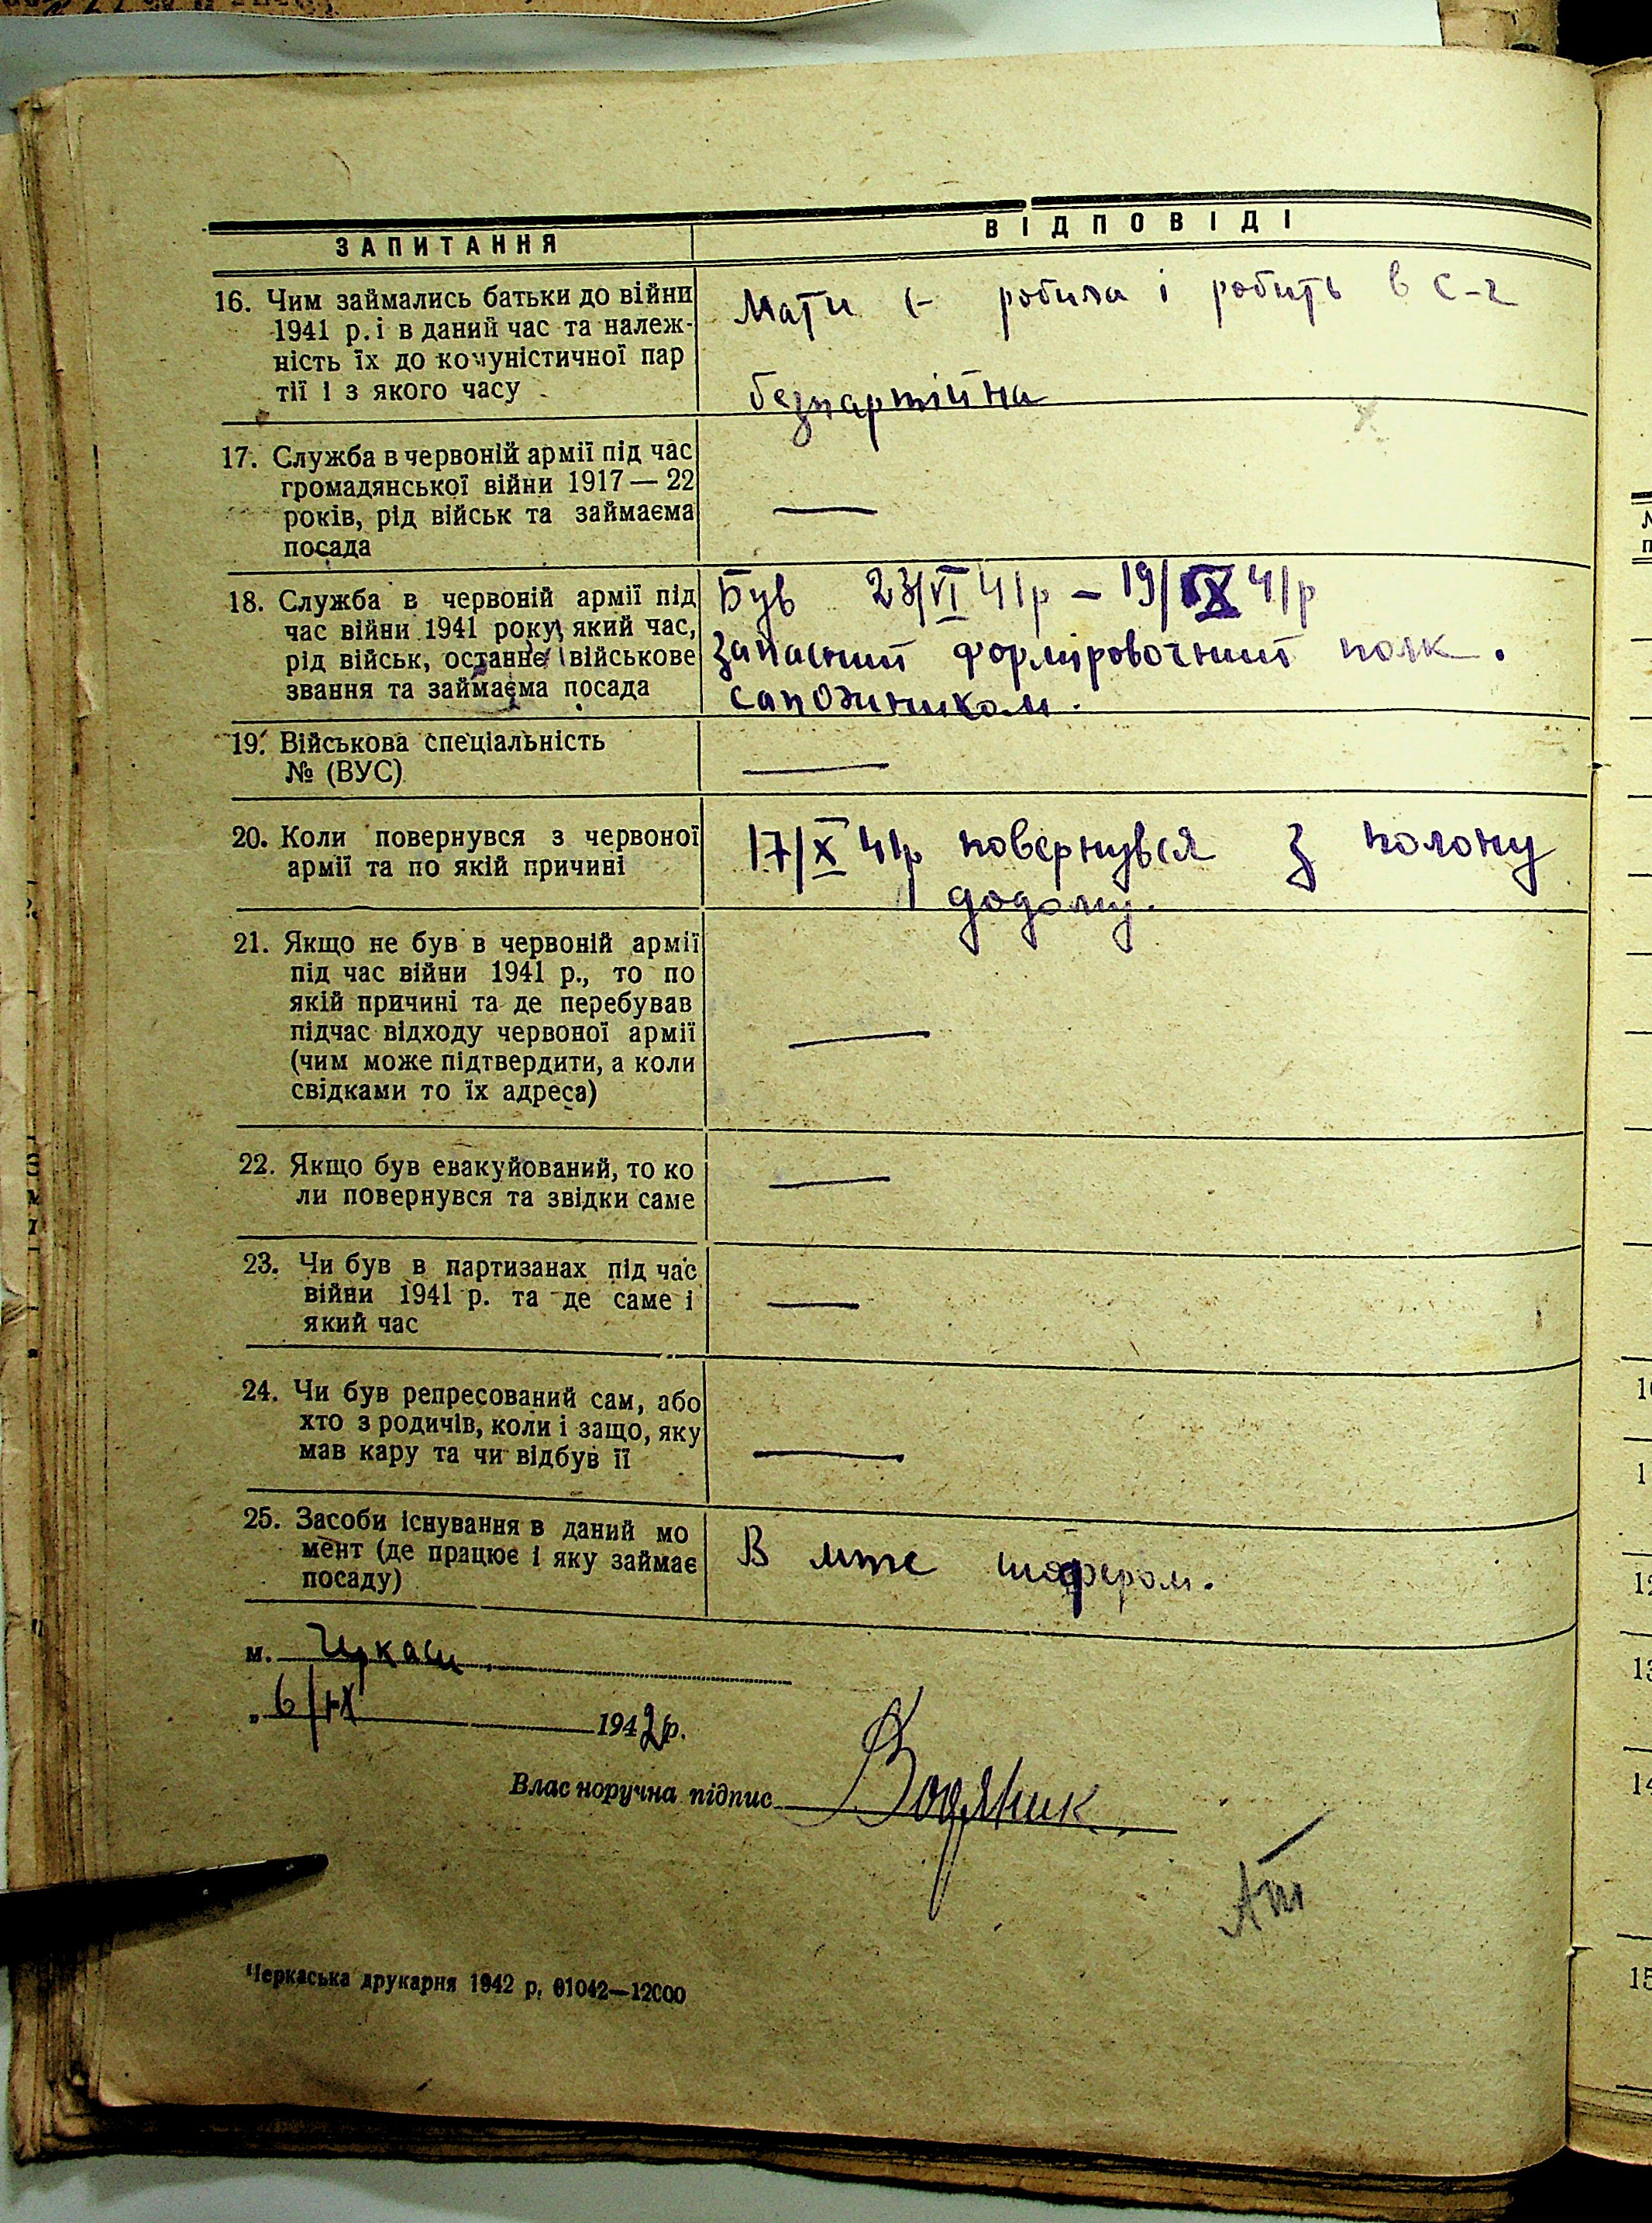 ЗАПИТАННЯ
ВІДПОВІДІ
16. Чим займались батьки до війни
1941 р. і в даний час та належ-
ність їх до комуністичної пар
тії і з якого часу
Мати робила і робить в с-г
безпартійна
17. Служба в червоній армії під час
громадянської війни 1917 — 22
років, рід військ та займаєма
посада
—
18. Служба в червоній армії під
час війни 1941 року, який час,
рід військ, останнє військове
звання та займаєма посада
Був 23/VI 41р – 19/IX 41р
запасний формировочний полк.
сапожником.
19. Військова спеціальність
№ (ВУС)
—
20. Коли повернувся з червоної
армії та по якій причині
17/X 41р повернувся з полону
додому.
21. Якщо не був в червоній армії
під час війни 1941 р., то по
якій причині та де перебував
підчас відходу червоної армії
(чим може підтвердити, а коли
свідками то їх адреса)
—
22. Якщо був евакуйований, то ко
ли повернувся та звідки саме
—
23. Чи був в партизанах під час
війни 1941 р. та де саме і
який час
—
24. Чи був репресований сам, або
хто з родичів, коли і защо, яку
мав кару та чи відбув її
—
25. Засоби існування в даний мо
мент (де працює і яку займає
посаду)
В шофером.
м. Черкаси
„ 6/IX 1942 р.
Влас норучна підпис Водяник
Черкаська друкарня 1942 р. 01042—12000